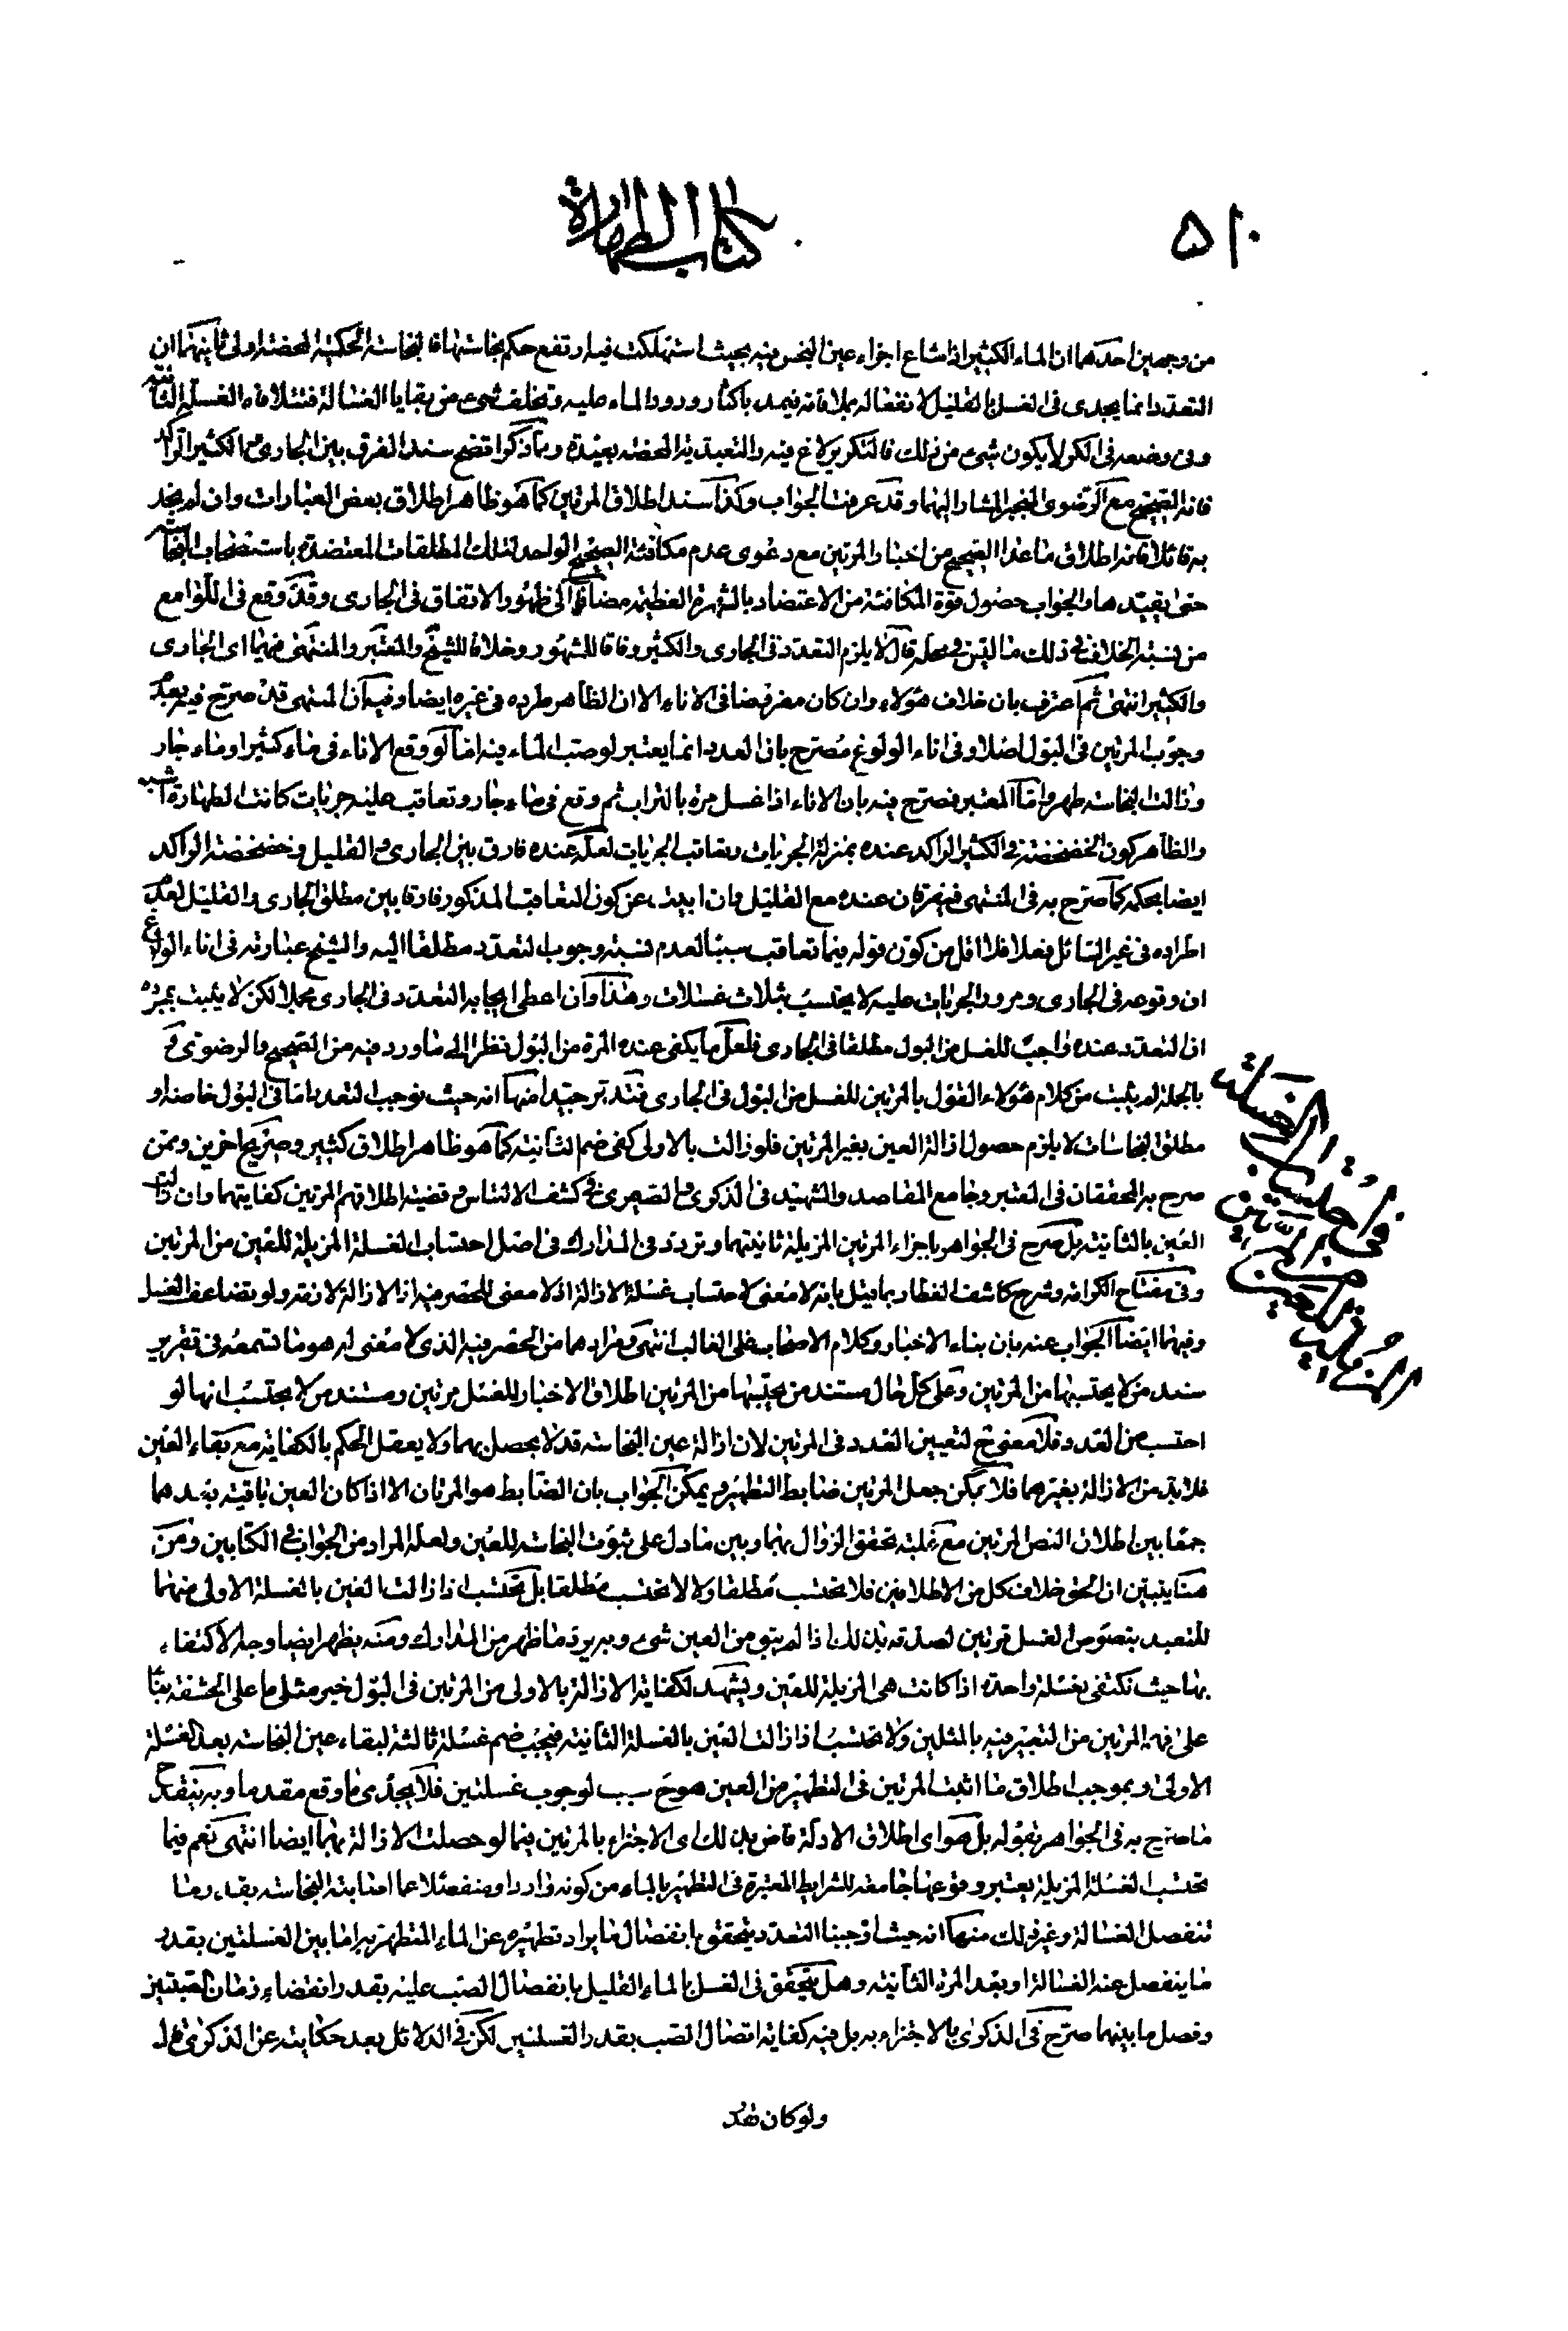 ٥١٠
كتاب الطهارة
من وجهين احدهما ان الماء الكثير اذا شاع اجزاء عين النجس فيه بحيث استهلكت فيه ارتفع حكم نجاستها فالنجاسة الحكمية المحضة اولى ثانيهما ان
التعدد انما يجدى فى الغسل بالقليل لانفعاله بملاقاته فيمد باكثار ورود الماء عليه وتخلف شىء من بقايا الغسالة فتتلافاه الغسلة الثانية
وفى وضعه فى الكر لا يكون شىء من ذلك فالتكرير لاغ فيه والتعبدية المحضة بعيدة وبما ذكر اتضح سند الفرق بين الجارى والكثير الراكد
فانه الصحيح مع الرضوى المنجبر المشار اليهما وقد عرفت الجواب وكذا سند اطلاق المرتين كما هو ظاهر اطلاق بعض العبارات وان لم نجد
به قائلا فانه اطلاق ما عدا الصحيح من اخبار المرتين مع دعوى عدم مكافئة الصحيح الواحد لتلك المطلقات المعتضدة باستصحاب النجاسة
حتى يقيدها والجواب حصول قوة المكافئة من الاعتضاد بالشهرة العظيمة مضافا الى ظهور الاتفاق فى الجارى وقد وقع فى اللوامع
من نسبة الخلاف فى ذلك ما قال لا يلزم التعدد فى الجارى والكثير وفاقا للمشهور وخلافا للشيخ والمعتبر والمنتهى فيهما اى الجارى
والكثير انتهى ثم اعترف بان خلاف هؤلاء وان كان مفروضا فى الاناء الا ان الظاهر طرده فى غيره ايضا وفيه ان المنتهى قد صرح فيه بعد
وجوب المرتين فى البول اصلا وفى اناء الولوغ مصرح بان العدد انما يعتبر لو صب الماء فيه اما لو وقع الاناء فى ماء كثير او ماء جار
وزالت النجاسة طهر واما المعتبر فصرح فيه بان الاناء اذا غسل مرة بالتراب ثم وقع فى ماء جار وتعاقب عليه جريات كانت الطهارة اشبه
والظاهر كون الخضخضة فى الكثير الراكد عنده بمنزلة الجريات وتعاقب الجريات لعله عنده فارق بين الجارى والقليل وخضخضة الراكد
ايضا بحكمه كما صرح به فى المنتهى فيفترقان عنده مع القليل وان ابيت عن كون التعاقب المذكور فارقا بين مطلق الجارى والقليل لعدم
اطراده فى غير السائل فعلا فلا اقل من كون قوله فيما تعاقب سببا لعدم نسبة وجوب التعدد مطلقا اليه والشيخ عبارته فى اناء الولوغ
ان وقوعه فى الجارى ومرور الجريات عليه لا يحتسب بثلاث غسلات وهذا وان اعطى ايجابه التعدد فى الجارى مجملا لكن لا يثبت بمجرده
ان التعدد عنده واجب للغسل من البول مطلقا فى الجارى فلعل ما يكفى عنده المرة من البول نظرا الى ما ورد فيه من الصحيح والرضوى و
بالجملة لم يثبت من كلام هؤلاء القول بالمرتين للغسل من البول فى الجارى فتدبر جيدا منها انه حيث نوجب التعدد اما فى البول خاصة او
مطلق النجاسات لا يلزم حصول ازالة العين بغير المرتين فلو زالت بالاولى كفى ضم الثانية كما هو ظاهر اطلاق كثير وصريح اخرين وممن
صرح به المحققان فى المعتبر وجامع المقاصد والشهيد فى الذكرى والصيمرى فى كشف الالتباس وقضية اطلاقهم المرتين كفايتهما وان زالت
العين بالثانية بل صرح فى الجواهر باجزاء المرتين المزيلة ثانيتهما وتردد فى المدارك فى اصل احتساب الغسلة المزيلة للعين من المرتين
وفى مفتاح الكرامة وشرح كاشف الغطا ربما قيل بانه لا معنى لاحتساب غسلة الازالة اذ لا معنى للحصر فيه اذ الازالة لازمة ولو بتضاعف الغسل
وفيهما ايضا الجواب عنه بان بناء الاخبار وكلام الاصحاب على الغالب انتهى ومرادهما من الحصر فيه الذى لا معنى له هو ما تسمعه فى تقرير
سند من لا يحتسبها من المرتين وعلى كل حال مستند من يحتسبها من المرتين اطلاق الاخبار للغسل مرتين ومستند من لا يحتسب انها لو
احتسب من العدد فلا معنى ح لتعيين العدد فى المرتين لان ازالة عين النجاسة قد لا يحصل بهما ولا يعقل الحكم بالكفاية مع بقاء العين
فلا بد من الازالة بغيرهما فلا يمكن جعل المرتين ضابط التطهير ويمكن الجواب بان الضابط هو المرتان الا اذا كان العين باقية بعدهما
جمعا بين اطلاق النص المرتين مع غلبة تحقق الزوال بهما وبين ما دل على ثبوت النجاسة للعين ولعله المراد من الجواب فى الكتابين ومن
هنا يتبين ان الحق خلاف كل من الاطلاقين فلا تحتسب مطلقا ولا لا تحتسب مطلقا بل تحتسب اذا زالت العين بالغسلة الاولى منهما
للتعبد بنصوص الغسل مرتين لصدقه بذلك اذا لم يبق من العين شىء وبه يرد ما ظهر من المدارك ومنه يظهر ايضا وجه الاكتفاء
بها حيث نكتفى بغسلة واحدة اذا كانت هى المزيلة للعين ويشهد لكفاية الازالة بالاولى من المرتين فى البول خبر مثلى ما على الحشفة بناء
على فهم المرتين من التعبير فيه بالمثلين ولا تحتسب اذا زالت العين بالغسلة الثانية فيجب ضم غسلة ثالثة لبقاء عين النجاسة بعد الغسلة
الاولى وبموجب اطلاق ما اثبت المرتين فى التطهير من العين هو ح سبب لوجوب غسلتين فلا يجدى ما وقع مقدما وبه ينقدح
ما صرح به فى الجواهر بقوله بل هو اى اطلاق الادلة قاض بذلك اى الاجتزاء بالمرتين فيما لو حصلت الازالة بهما ايضا انتهى نعم فيما
تحتسب الغسلة المزيلة يعتبر وقوعها جامعة للشرايط المعتبرة فى التطهير بالماء من كونه واردا ومنفصلا عما اصابته النجاسة بقدر ما
تنفصل الغسالة وغير ذلك منها انه حيث اوجبنا التعدد يتحقق بانفصال ما يراد تطهيره عن الماء المتطهر به اما بين الغسلتين بقدر
ما ينفصل عنه الغسالة او بعد المرة الثانية وهل يتحقق فى الغسل بالماء القليل بانفصال الصب عليه بقدر انقضاء زمان الصبتين
وفصل ما بينهما صرح فى الذكرى بالاجتزاء به بل فيه كفاية اتصال الصب بقدر الغسلتين لكن فى الدلائل بعد حكايته عن الذكرى قال
فى احتساب الغسلة
المزيلة للعين من المرتين
ولو كان هذ